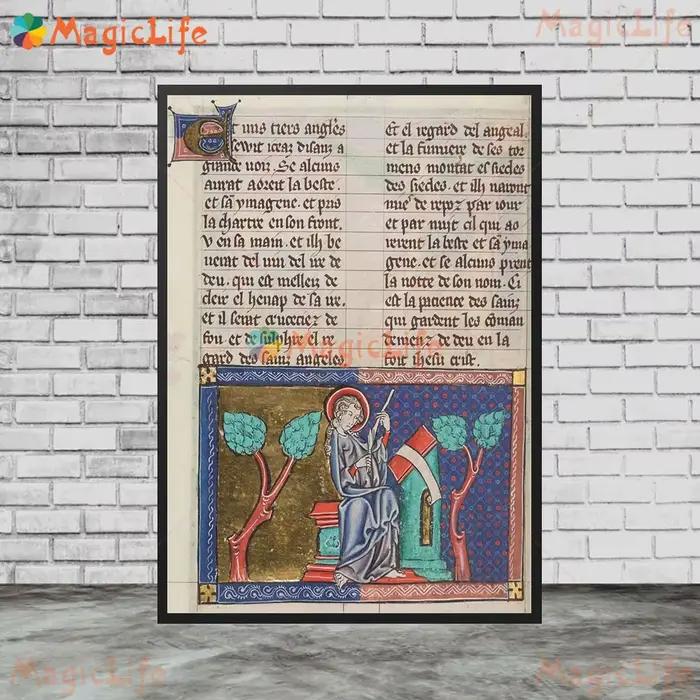 MagicLife
MagicLife
Et uns tiers angles
sewit iceaz disanz a
grande uoiz. Se alcuns
aurat aoreit la beste.
et sa ymagene. et pris
la chartre en son front.
v en sa main. et ilh be
uerat del uin del ire de
deu. qui est melleiz de
cleir el henap de sa ire.
et il serat crucefiez de
fou. et de sulphre el re
gard des sainz angeles
Et el regard del angeal.
et la fumiere de ses tor
mens montat es siecles
des siecles. et ilh nauront
nue de repoz par iour
et par nuit cil qui ao
rerent la beste et sa yma
gene. et se alcuns prent
la notte de son nom. Ci
est la pacience des sainz
qui gardent les coman
demenz de deu en la
foit ihesu crist.
MagicLife
MagicLife
MagicLife